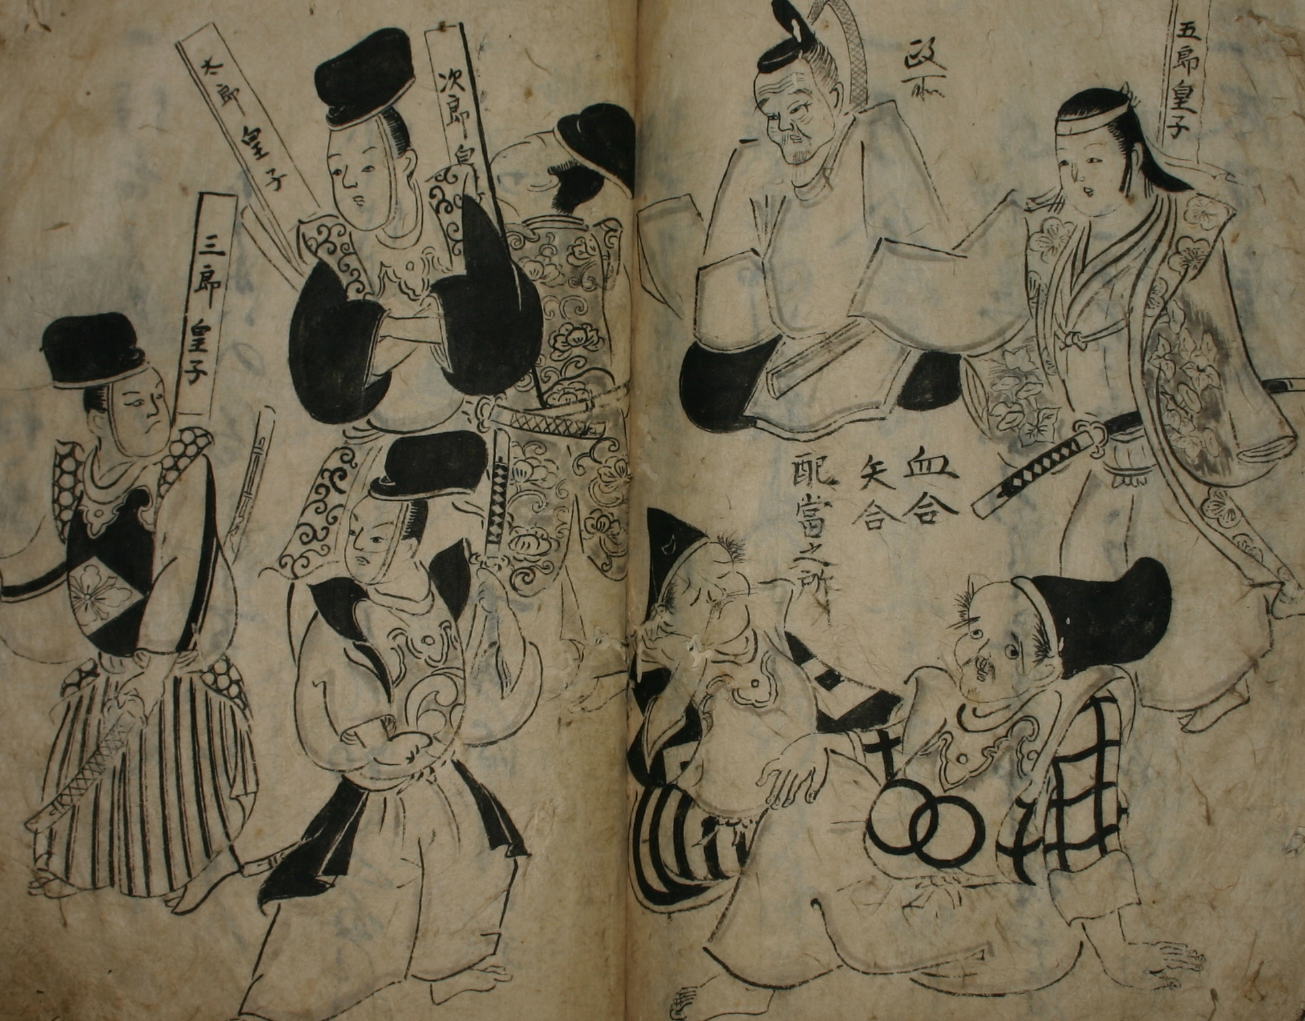 五郎皇子
政所
血合
矢合
配當之所
次郎皇
太郎皇子
三郎皇子